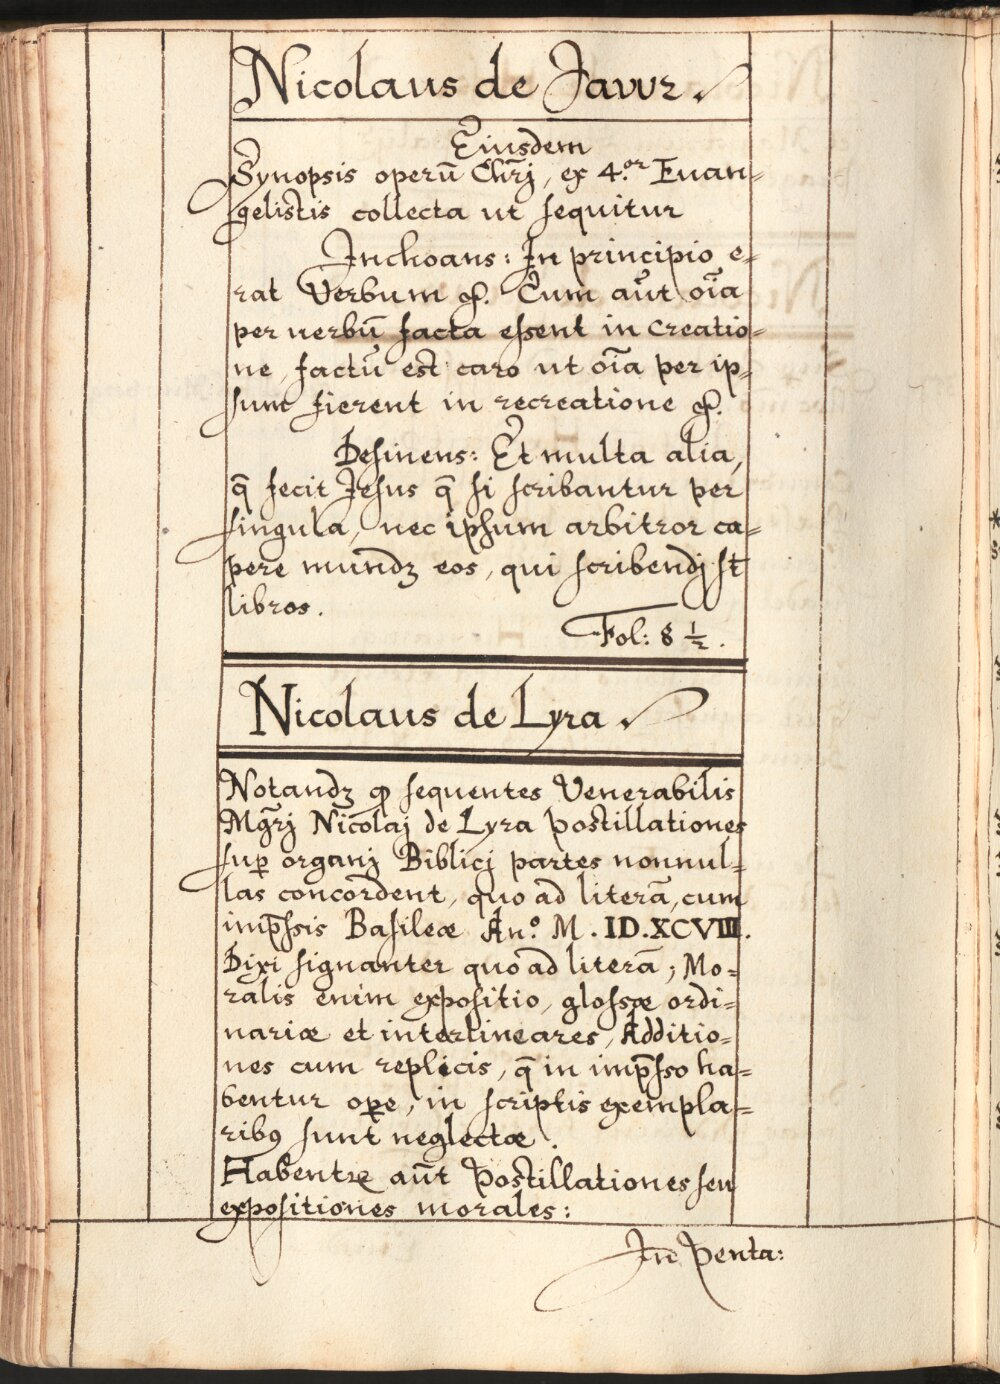 Nicolaus de Javvr.
Eiusdem
Synopsis operū Chr̄j, ex 4.or Euan=
gelistis collecta ut sequitur
Inchoans: In principio e=
rat Verbum &. Cum aūt oīa
per uerbū facta essent in creatio=
ne, factū est caro ut oīa per ip=
sum fierent in recreatione &.
Desinens: Et multa alia,
q̄ fecit Jesus q̄ si scribantur per
singula, nec ipsum arbitror ca=
pere mundꝫ eos, qui scribendj st̄
libros.
Fol: 8 ½.
Nicolaus de Lyra.
Notandꝫ ꝙ sequentes Venerabilis
Mgr̄j Nicolaj de Lyra postillationes
sup̱ organj Biblicj partes nonnul=
las concordent, quo ad literā, cum
imp̄ssis Basileæ An.o M. ID.XCVIII.
Dixi signanter quo ad literā; Mo=
ralis enim expositio, glossæ ordi=
nariæ et interlineares, Additio=
nes cum replicis, q̄ in imp̄sso ha=
bentur oꝑe, in scriptis exempla=
ribꝰ sunt neglectæ.
Habentꝛ aūt Postillationes seu
expositiones morales:
In Penta: